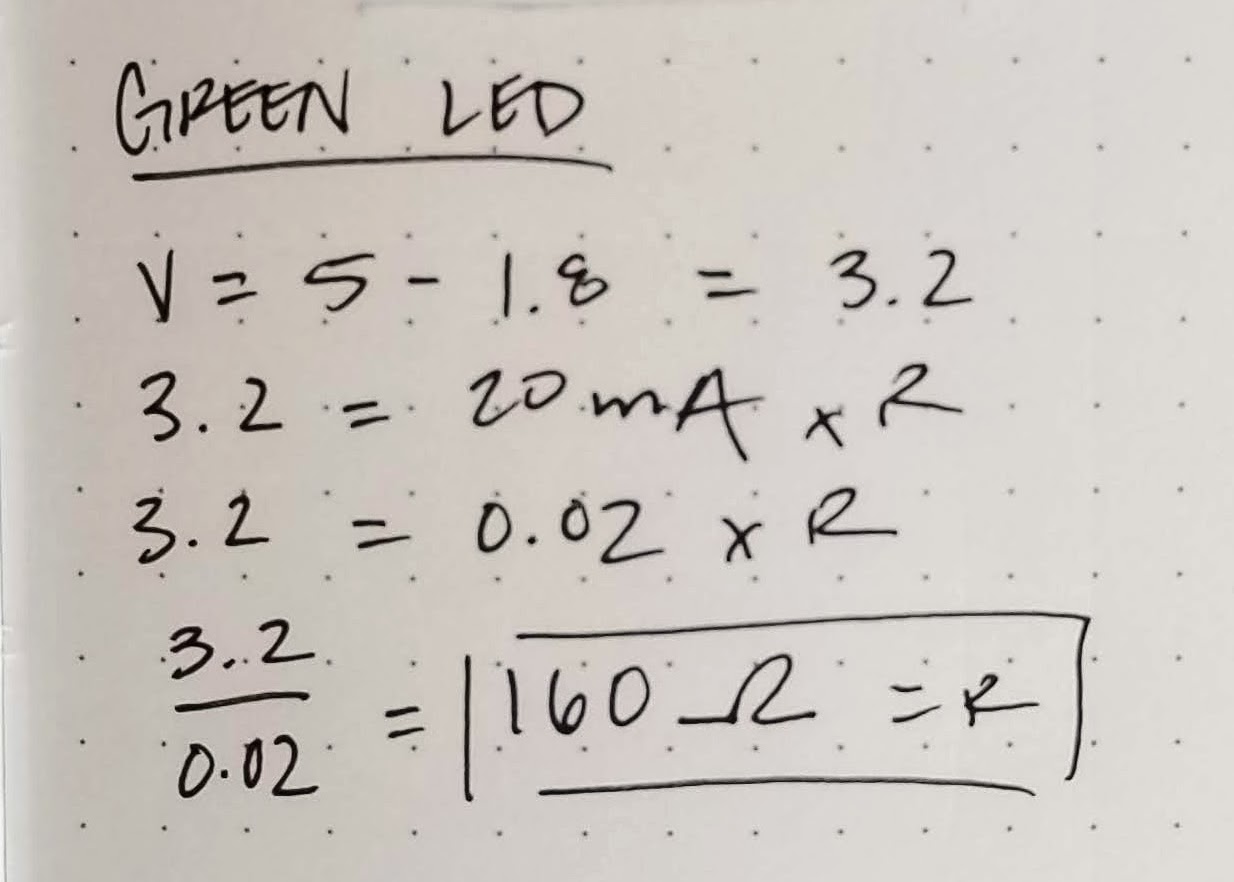 GREEN LED
V = 5 - 1.8 = 3.2
3.2 = 20 mA x R
3.2 = 0.02 x R
3.2
0.02 = 160 Ω = R